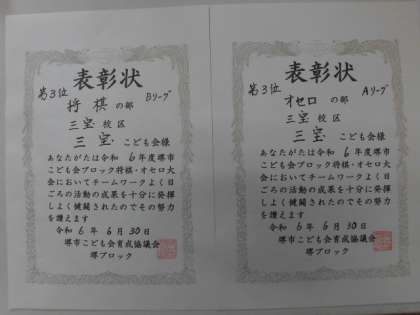 表彰状
第3位
将棋の部 Bリーグ
三宝校区
三宝こども会様
あなたがたは令和6年度堺市
こども会ブロック将棋・オセロ大
会においてチームワークよく日
ごろの活動の成果を十分に発揮
しよく健闘されたのでその努力
を讃えます
令和6年6月30日
堺市こども会育成協議会
堺ブロック
表彰状
第3位
オセロの部 Aリーグ
三宝校区
三宝こども会様
あなたがたは令和6年度堺市
こども会ブロック将棋・オセロ大
会においてチームワークよく日
ごろの活動の成果を十分に発揮
しよく健闘されたのでその努力
を讃えます
令和6年6月30日
堺市こども会育成協議会
堺ブロック